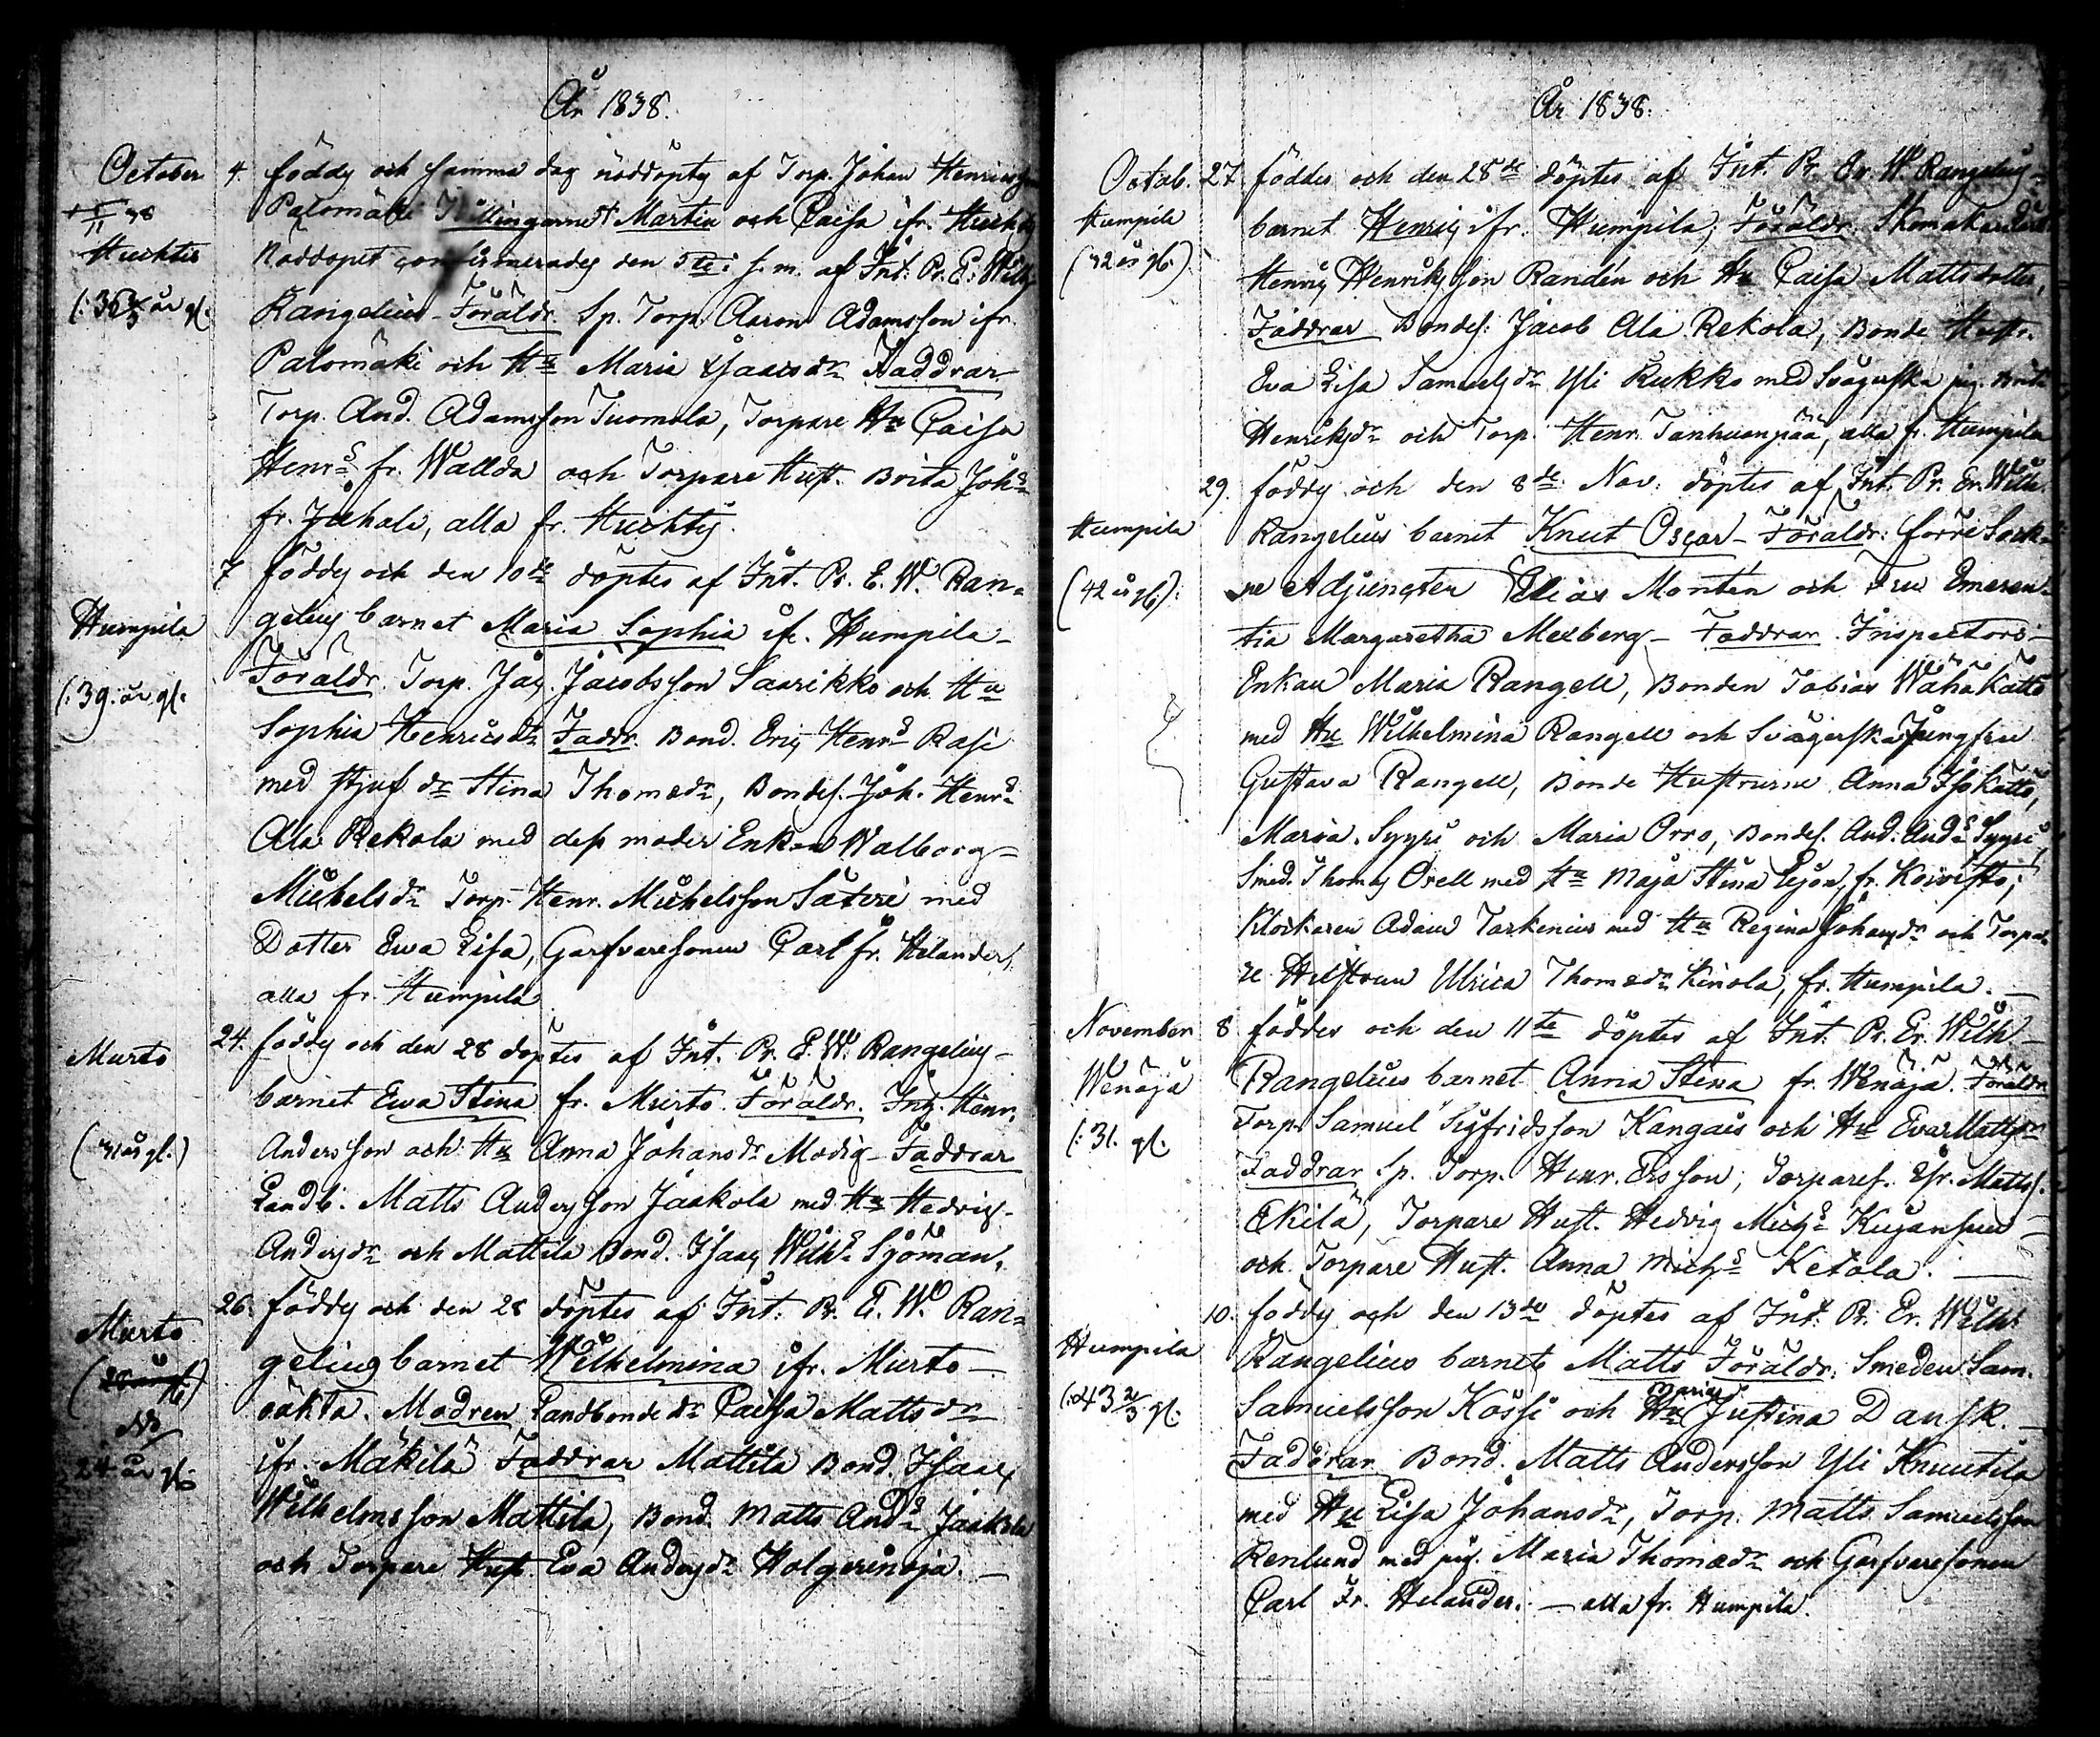 År 1838.
October 4. föddes och samma dag nöddöptes af Torp. Johan Henricsson
Palomäki Tvillingarne † Martin och Caisa ifr. Huchtis
+ 5/11 38
Huchtis
Nöddopet confirmerades den 5te i s. m. af Int. Pr. E. Wilh.
(: 36 2/3 år gl. Rangelius - Föräldr. Sp. Torp. Aaron Adamsson ifr.
Palomäki och Hu Maria Isaacsdr Faddrar
Torp. And. Adamsson Tuomola, Torpare Hu Caisa
Henrs fr. Wallda och Torpare Hust. Brita Johs
fr. Juhala, alla fr. Huchtis.
7 föddes och den 10de döptes af Int. Pr. E. W. Ran-
Humpila gelius barnet Maria Sophia ifr. Humpila -
(: 39. år gl. Föräldr. Torp. Jac. Jacobsson Saarikko och Hu
Sophia Henricsdr Faddr. Bond. Eric Henrs Rasi
med stjuf dr Stina Thomædr, Bondes. Joh. Henrs
Ala Rekola med dess moder Enkan Walborg
Michelsdr Torp. Henr. Michelsson Säteri med
Dotter Ewa Lisa, Garfvaresonen Carl fr. Helander,
alla fr. Humpila
24. föddes och den 28 döptes af Int. Pr. E. W. Rangelius -
Murto barnet Ewa Stina fr. Murto. Föräldr. Inh. Henr.
(31 år gl.) Andersson och Hu Anna Johansdr Modig - Faddrar
Landb. Matts Andersson Jaakola med Hu Hedvig
Andersdr och Mattila Bond. Isaac Wilhs Sjöman.
26. föddes och den 28 döptes af Int. Pr. E. W. Ran-
Murto gelius barnet Wilhelmina ifr. Murto -
oäkta. Modren Landbonde dr Caisa Mattsdr
24 år gl. ifr. Mäkilä Faddrar Mattila Bond. Isaac
Wilhelmsson Mattila, Bond. Matts Ands Jaakola
och Torpare Hust. Eva Andersdr Holgerinoja. -
År 1838.
Octob. 27 föddes och den 28de döptes af Int. Pr. Er. W. Rangelius -
Humpila barnet Henric ifr. Humpila; Föräldr.
(32 år gl.) Henric Henriksson Randén och Hu Caisa Mattsdotter,
Faddrar Bondes. Jacob Ala Rekola, Bonde Hustr.
Eva Lisa Samuelsdr Yli Kukko med Svägerska pig.
Henriksdr och Torp. Henr. Tanhuanpää, alla fr. Humpila
29. föddes och den 8de Nov. döptes af Int. Pr. Er. Wilh.
Humpila Rangelius barnet Knut Oscar - Föräldr: förre Sock-
(42 år gl.): ne Adjuncten Elias Montén och Fru Emeren-
tia Margaretha Mexberg - Faddrar Inspectors -
Enkan Maria Rangell, Bonden Tobias Wähä Kättö
med Hu Wilhelmina Rangell och Svägerska Jungfru
Gustava Rangell, Bonde Hustrurne Anna Iso Kättö,
Maria Syyri och Maria Orro, Bondes. And. Ands Syyri,
Smed. Thomas Orell med Hu Maja Stina Lejon, fr. Koivisto;
Klockaren Adam Tarkenius med Hu Regina Johansdr och Torpa-
re Hustrun Ulrica Thomædr Kinola, fr. Humpila. -
November 8 föddes och den 11te döptes af Int. Pr. Er. Wilh -
Wenäjä Rangelius barnet Anna Stina fr. Wenäjä. Föräldr
(: 31. gl. Torp. Samuel Sigfridsson Kangais och Hu Eva Mattsdr
Faddrar Sp. Torp. Henr. Ersson, Torpares. Efr. Mattss.
Ekilä, Torpare Hust. Hedvig Michs Kujansuu -
och Torpare Hust. Anna Michs Ketola. -
10. föddes och den 13de döptes af Int. Pr. Er. Wilh.
Humpila Rangelius barnet Matts Föräldr: Smeden Sam.
(: 43 2/3 gl. Samuelsson Kössi och Hu Maria Justina Dansk. -
Faddrar Bond. Matts Andersson Yli Knuutila
med Hu Lisa Johansdr, Torp. Matts Samuelsson
Renlund med pig. Maria Thomædr och Garfvaresonen
Carl Fr. Helander. - alla fr. Humpila.